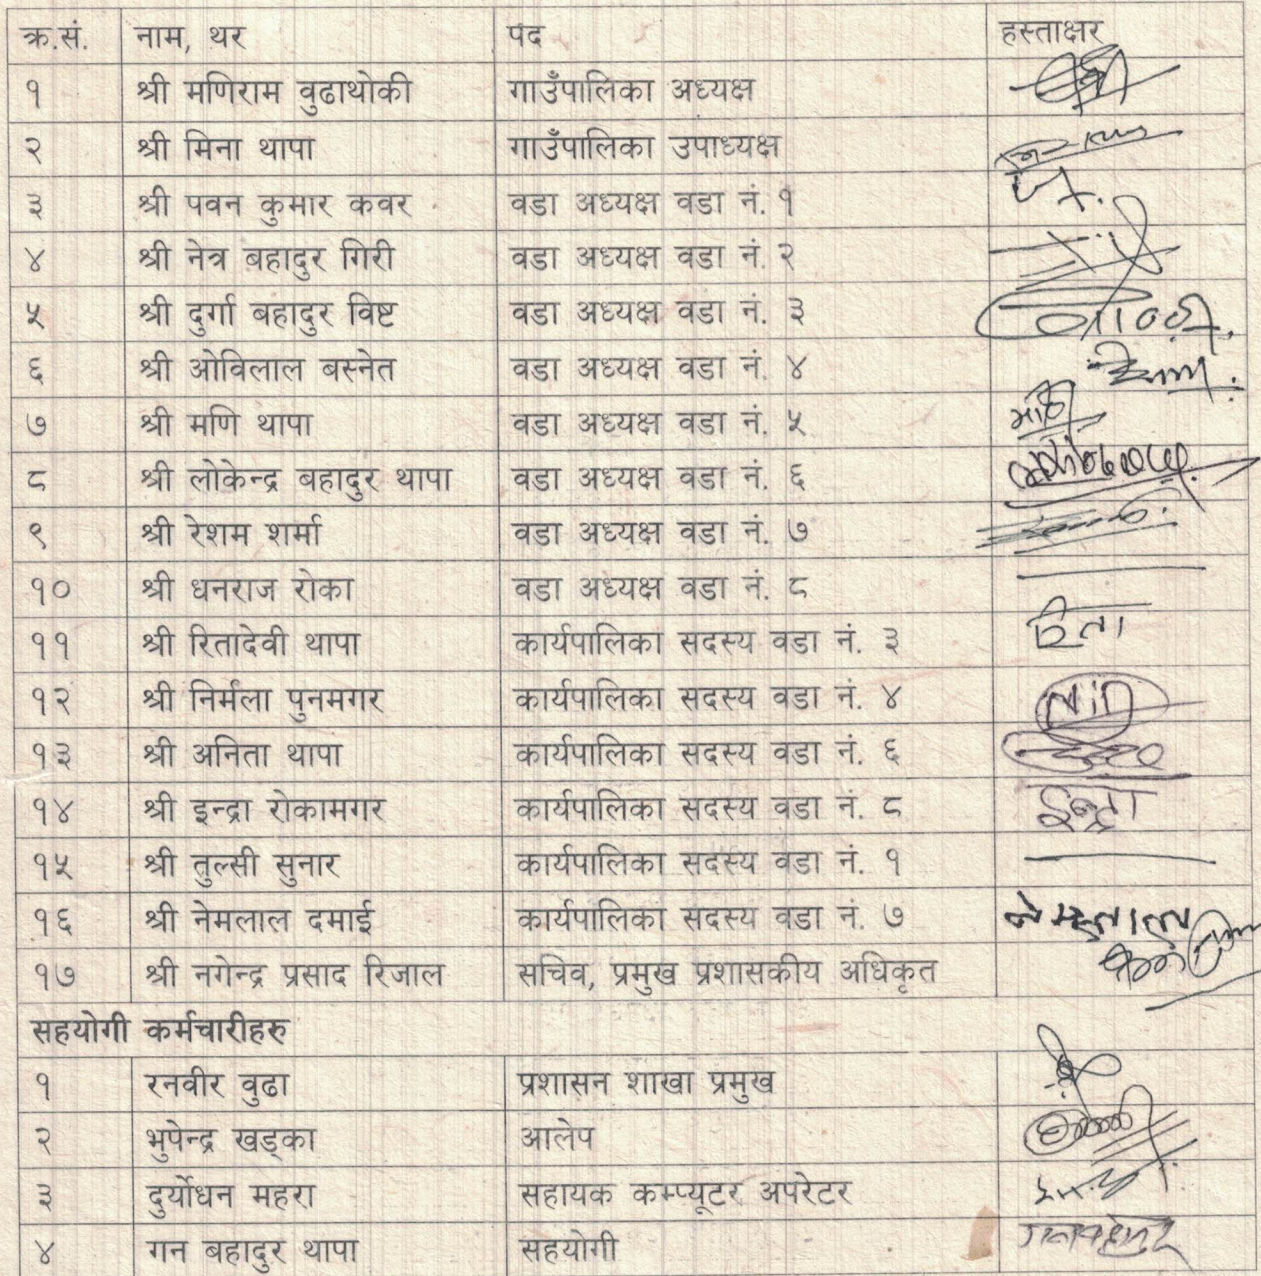 क्र.सं. नाम, थर पद हस्ताक्षर
१ श्री मणिराम वुढाथोकी गाउँपालिका अध्यक्ष
२ श्री मिना थापा गाउँपालिका उपाध्यक्ष
३ श्री पवन कुमार कवर वडा अध्यक्ष वडा नं. १
४ श्री नेत्र बहादुर गिरी वडा अध्यक्ष वडा नं. २
५ श्री दुर्गा बहादुर विष्ट वडा अध्यक्ष वडा नं. ३
६ श्री ओविलाल बस्नेत वडा अध्यक्ष वडा नं. ४
७ श्री मणि थापा वडा अध्यक्ष वडा नं. ५
८ श्री लोकेन्द्र बहादुर थापा वडा अध्यक्ष वडा नं. ६
९ श्री रेशम शर्मा वडा अध्यक्ष वडा नं. ७
१० श्री धनराज रोका वडा अध्यक्ष वडा नं. ८
११ श्री रितादेवी थापा कार्यपालिका सदस्य वडा नं. ३ रिता
१२ श्री निर्मला पुनमगर कार्यपालिका सदस्य वडा नं. ४
१३ श्री अनिता थापा कार्यपालिका सदस्य वडा नं. ६
१४ श्री इन्द्रा रोकामगर कार्यपालिका सदस्य वडा नं. ८ इन्द्रा
१५ श्री तुल्सी सुनार कार्यपालिका सदस्य वडा नं. १
१६ श्री नेमलाल दमाई कार्यपालिका सदस्य वडा नं. ७ नेमलाल
१७ श्री नगेन्द्र प्रसाद रिजाल सचिव, प्रमुख प्रशासकीय अधिकृत
सहयोगी कर्मचारीहरु
१ रनवीर वुढा प्रशासन शाखा प्रमुख
२ भुपेन्द्र खड्का आलेप
३ दुर्योधन महरा सहायक कम्प्यूटर अपरेटर
४ गन बहादुर थापा सहयोगी